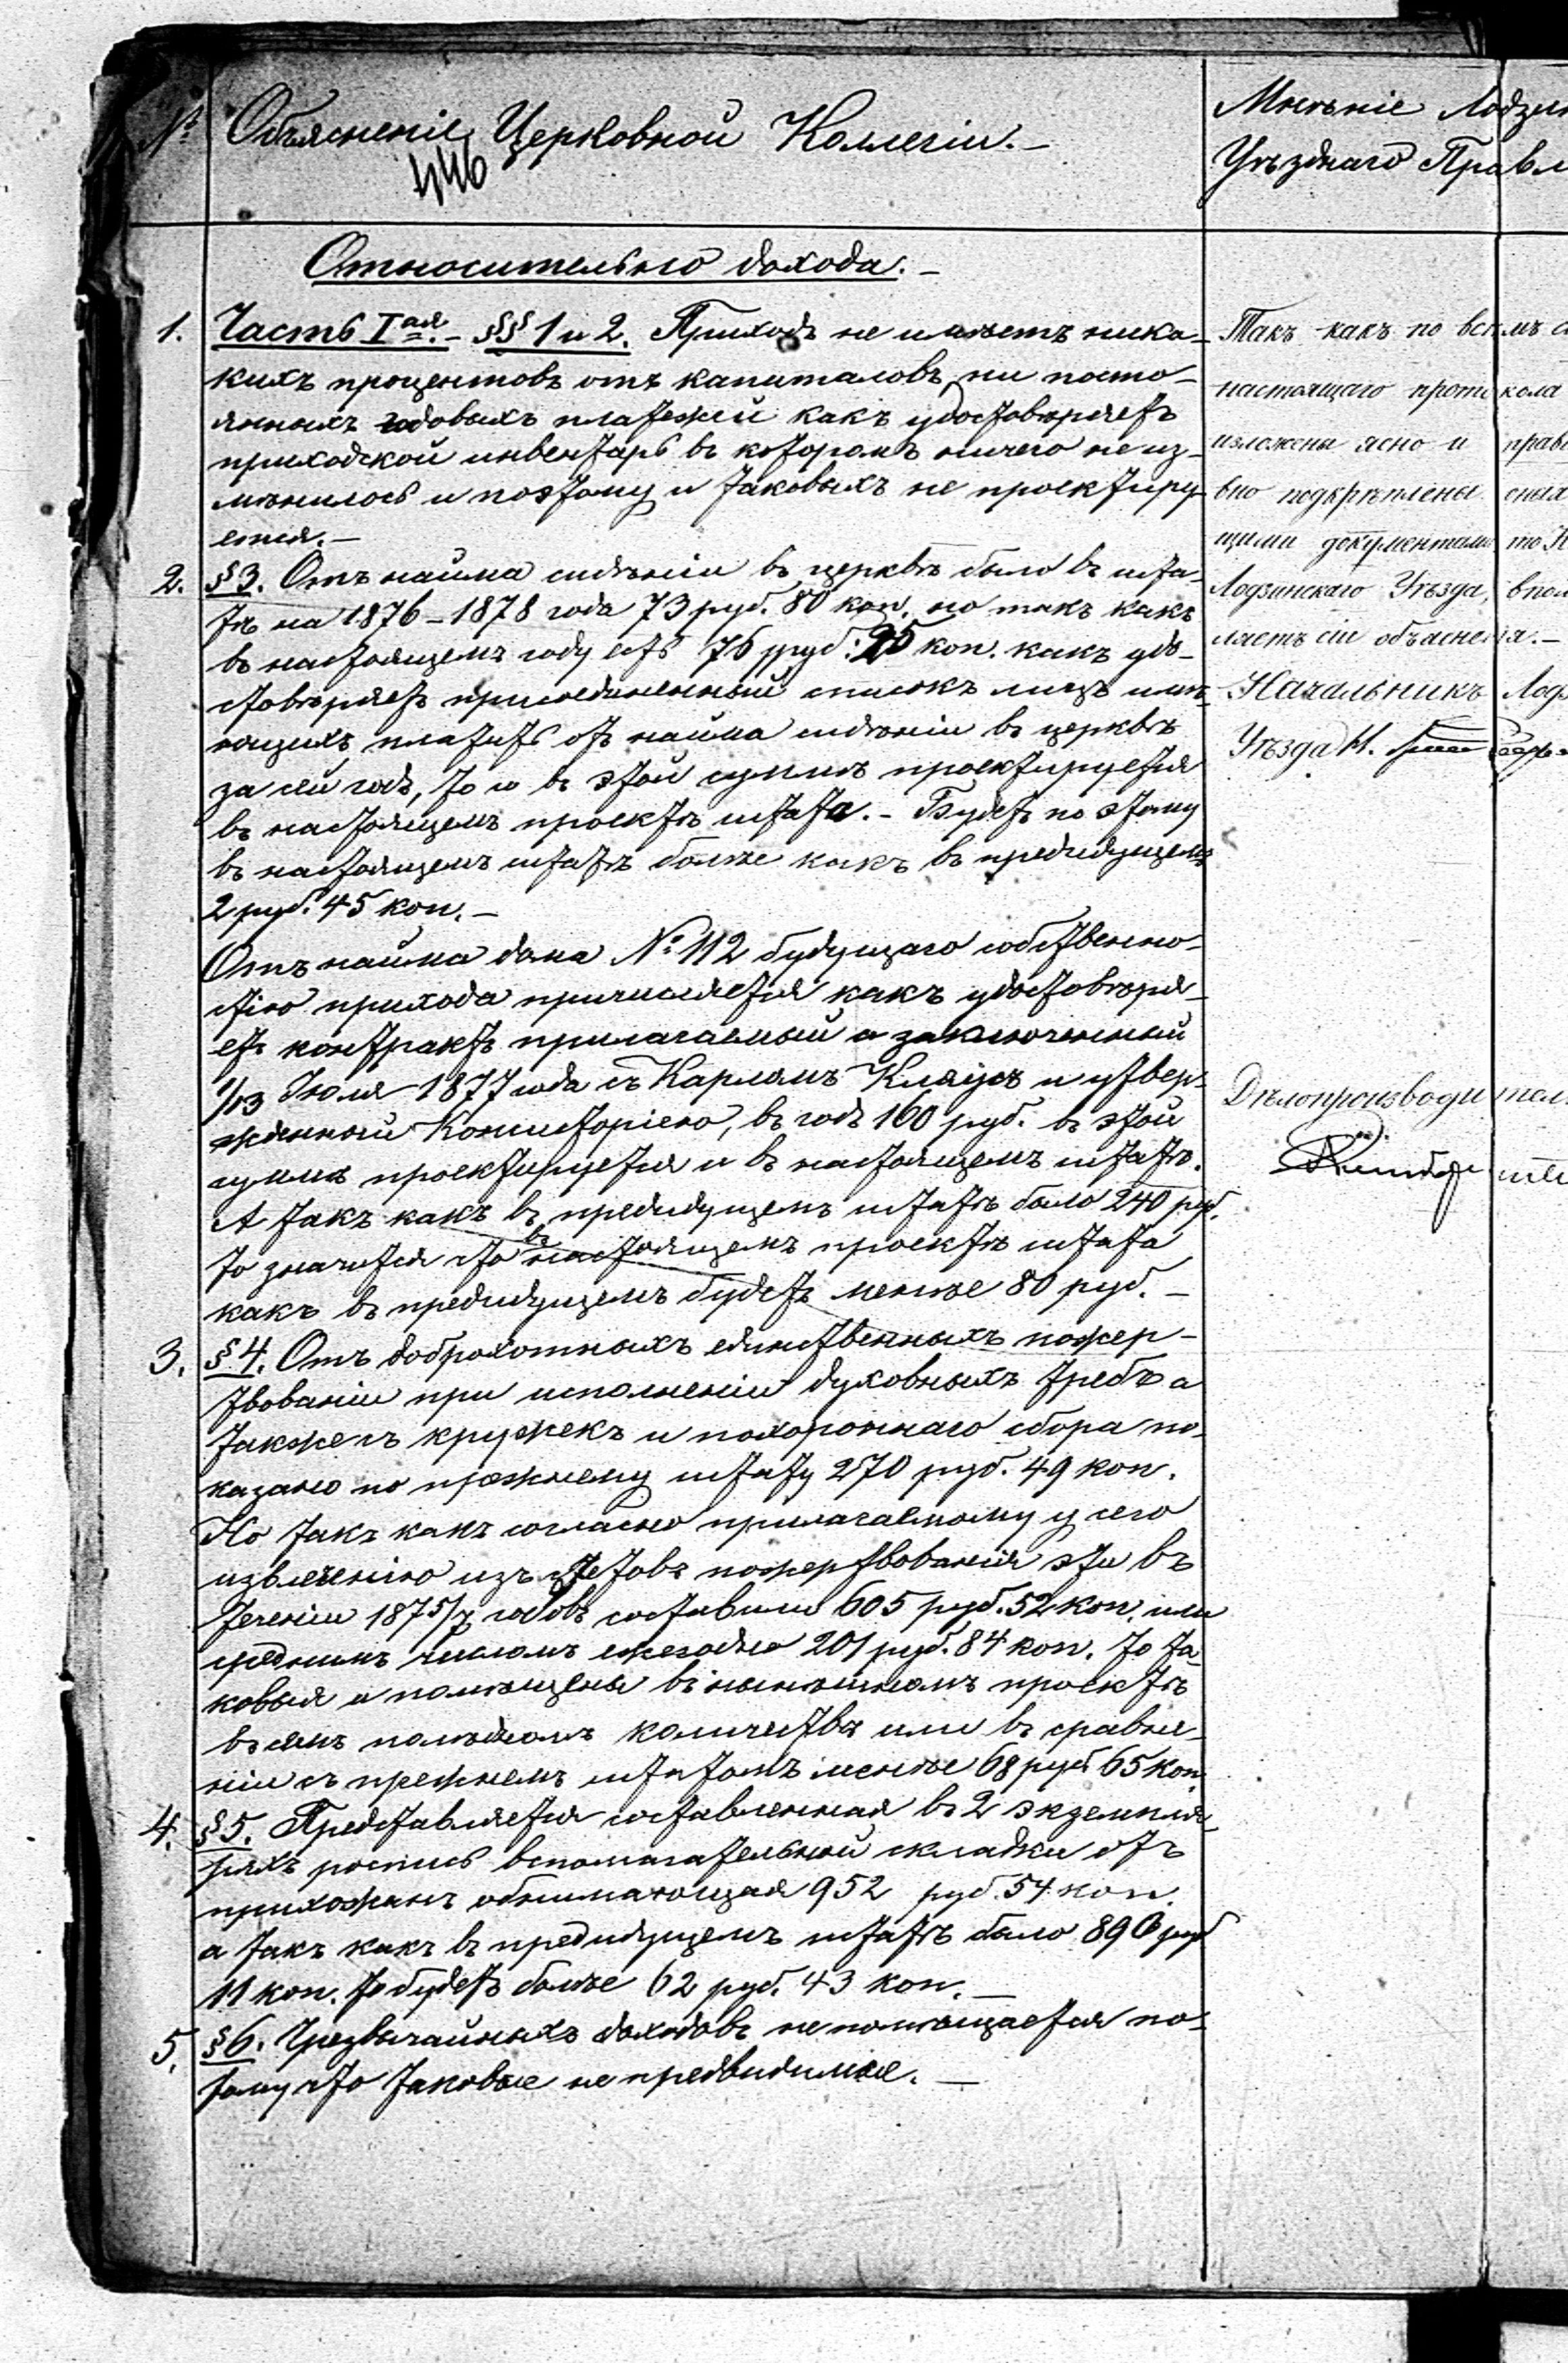 № Объясненіе Церковной Коллегіи.–
446
Относительно дохода.–
1. Часть Iая.– §§ 1 и 2. Приходъ не имѣетъ ника-
кихъ процентовъ отъ капиталовъ, ни посто-
янныхъ годовыхъ платежей какъ удостовѣряетъ
приходской инвентарь въ которомъ ничего не из-
мѣнилось и поэтому и таковыхъ не проектиру
ется.–
2. § 3. Отъ найма сидѣніи въ церквѣ было въ шта-
тѣ на 1876–1878 года 73 руб. 80 коп. но такъ какъ
въ настоящемъ году есть 76 руб. 25 коп. какъ удо-
стовѣряетъ присоединенный списокъ лицъ имѣ-
ющихъ платить отъ найма сидѣніи въ церквѣ
за сей годъ, то и въ этой суммѣ проектируется
въ настоящемъ проектѣ штата.– Будетъ по этому
въ настоящемъ штатѣ болѣе какъ въ предидущемъ
2 руб. 45 коп.–
Отъ найма дома № 112 будущаго собственно-
стію прихода причисляется какъ удостовѣря-
етъ контрактъ прилагаемый а заключенный
1/13 Іюля 1877 года съ Карломъ Кляусъ и утвер-
жденный Консисторіею, въ годъ 160 руб. въ этой
суммѣ проектируется и въ настоящемъ штатѣ.
А такъ какъ въ предидущемъ штатѣ было 240 руб.
то значится что въ настоящемъ проектѣ штата
какъ въ предидущемъ будетъ менѣе 80 руб.–
3. § 4. Отъ доброхотныхъ единственныхъ пожер-
твованіи при исполненіи духовныхъ требъ а
также съ кружекъ и похороннаго сбора по-
казано по прежнему штату 270 руб. 49 коп.
Но такъ какъ согласно прилагаемому у сего
извлеченію изъ счетовъ пожертвованія эти въ
теченіи 1875/7 годовъ составили 605 руб. 52 коп. или
среднимъ числомъ ежегодно 201 руб. 84 коп. то та-
ковыя и помѣщены въ нынѣшномъ проектѣ
въ семъ количествѣ или въ сравне-
ніи съ прежнемъ штатомъ менѣе 68 руб 65 коп
4. § 5. Представляется составленная въ 2 экземпля-
рахъ роспись вспомагательной складки отъ
прихожанъ обнимающая 952 руб. 54 коп.
а такъ какъ въ предидущемъ штатѣ было 890 руб
11 коп. то будетъ болѣе 62 руб. 43 коп.–
5. § 6. Чрезвычайныхъ доходовъ не помѣщается по-
тому что таковые не предвидимые.–
Мнѣніе Лодзин
Уѣзднаго Правл
Такъ какъ по всѣмъ с
настоящаго протокола
изложены ясно и прав
вно подкрѣплены
щими документами то Н
Лодзинскаго Уѣзда, впол
ляетъ сіи объясненія.–
Начальникъ Лодз
Уѣзда
Дѣлопроизводител